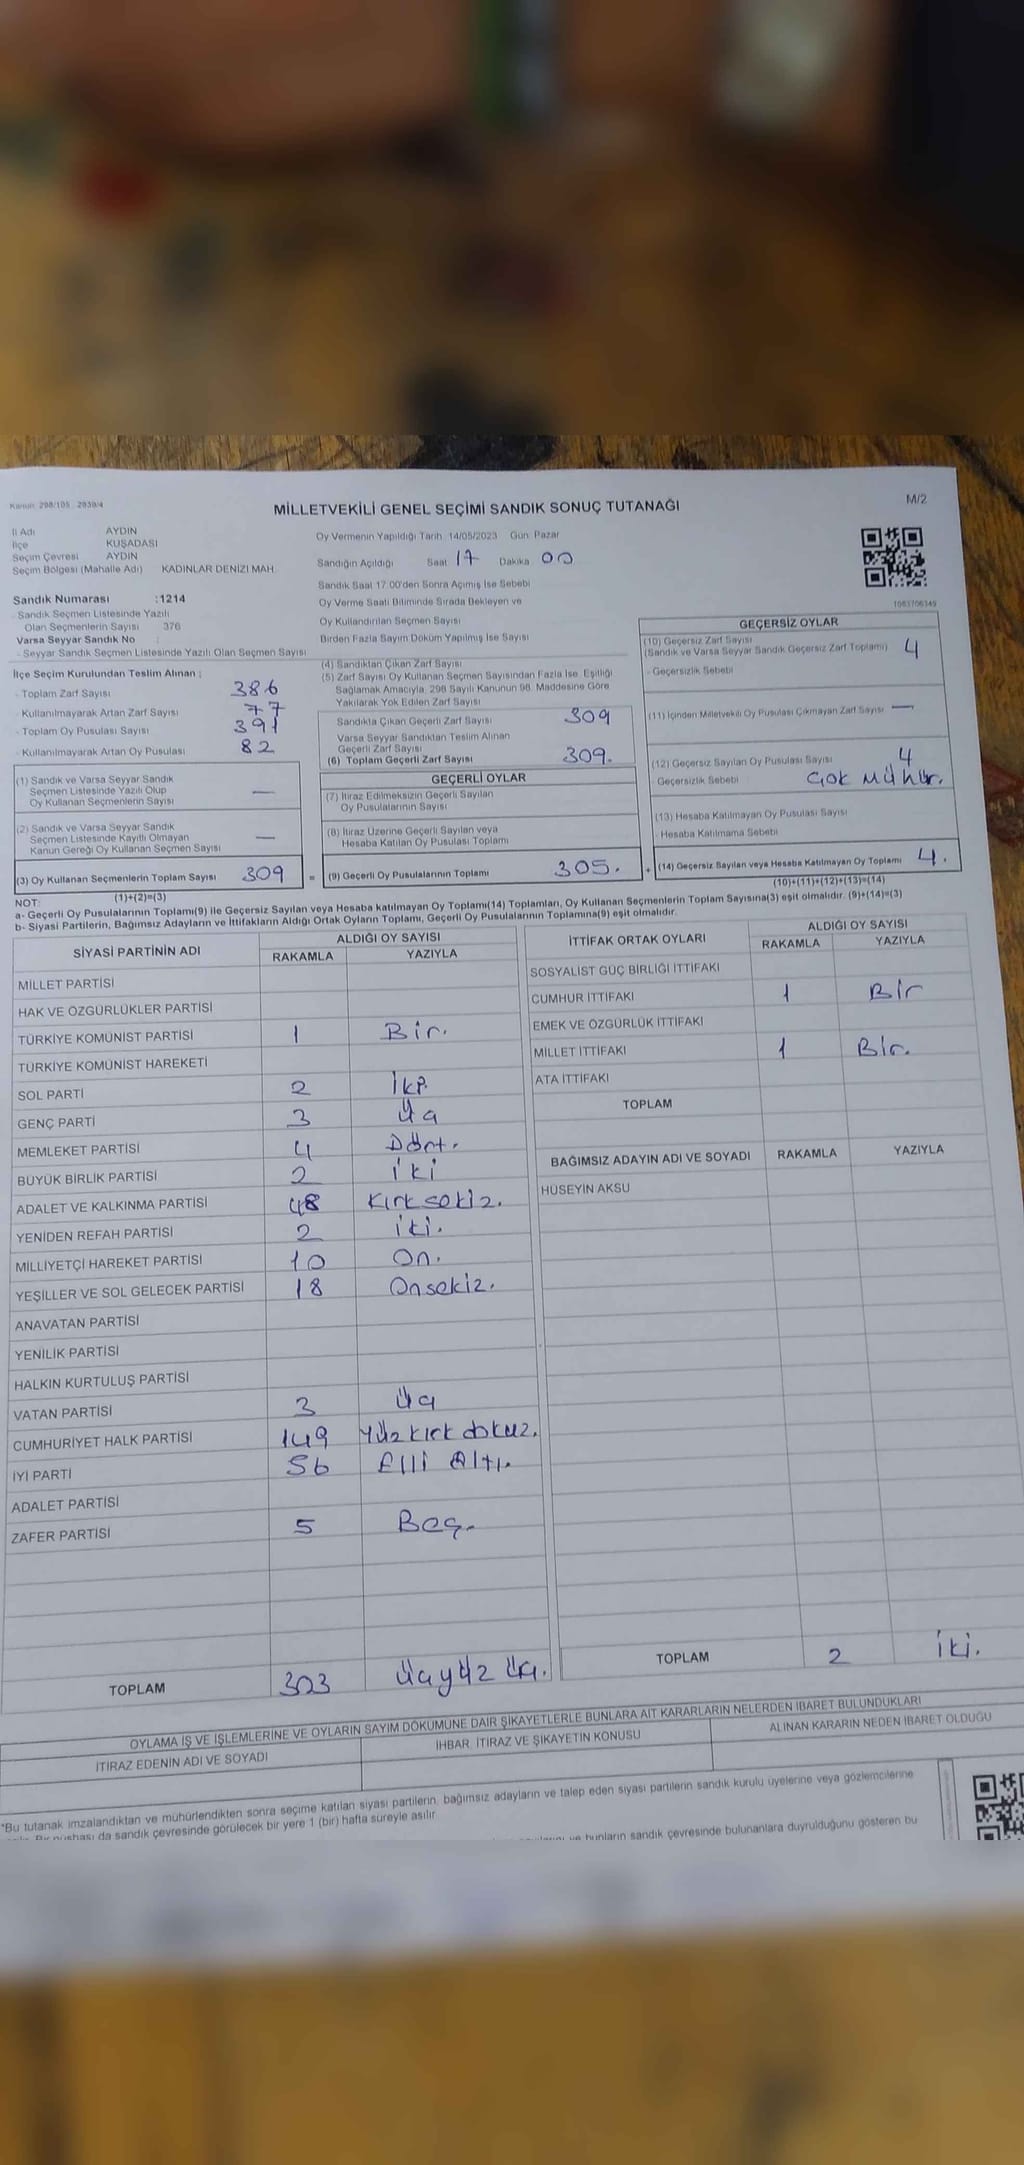 Kanun: 298/105 2839/4
MİLLETVEKİLİ GENEL SEÇİMİ SANDIK SONUÇ TUTANAĞI
M/2
İl Adı AYDIN
İlçe KUŞADASI
Seçim Çevresi AYDIN
Seçim Bölgesi (Mahalle Adı) KADINLAR DENİZİ MAH.
Oy Vermenin Yapıldığı Tarih 14/05/2023 Gün: Pazar
Sandığın Açıldığı Saat 17 Dakika 00
Sandık Saat 17:00'den Sonra Açımış İse Sebebi
Oy Verme Saati Bitiminde Sırada Bekleyen ve
Oy Kullandırılan Seçmen Sayısı
Birden Fazla Sayım Döküm Yapılmış İse Sayısı
Sandık Numarası :1214
- Sandık Seçmen Listesinde Yazılı
Olan Seçmenlerin Sayısı 376
Varsa Seyyar Sandık No :
- Seyyar Sandık Seçmen Listesinde Yazılı Olan Seçmen Sayısı
İlçe Seçim Kurulundan Teslim Alınan :
- Toplam Zarf Sayısı 386
- Kullanılmayarak Artan Zarf Sayısı 77
- Toplam Oy Pusulası Sayısı 391
- Kullanılmayarak Artan Oy Pusulası 82
(1) Sandık ve Varsa Seyyar Sandık
Seçmen Listesinde Yazılı Olup
Oy Kullanan Seçmenlerin Sayısı —
(2) Sandık ve Varsa Seyyar Sandık
Seçmen Listesinde Kayıtlı Olmayan
Kanun Gereği Oy Kullanan Seçmen Sayısı —
(3) Oy Kullanan Seçmenlerin Toplam Sayısı 309
(1)+(2)=(3)
(4) Sandıktan Çıkan Zarf Sayısı
(5) Zarf Sayısı Oy Kullanan Seçmen Sayısından Fazla İse, Eşitliği
Sağlamak Amacıyla, 298 Sayılı Kanunun 98. Maddesine Göre
Yakılarak Yok Edilen Zarf Sayısı
Sandıkta Çıkan Geçerli Zarf Sayısı 309
Varsa Seyyar Sandıktan Teslim Alınan
Geçerli Zarf Sayısı
(6) Toplam Geçerli Zarf Sayısı 309.
GEÇERLİ OYLAR
(7) İtiraz Edilmeksizin Geçerli Sayılan
Oy Pusulalarının Sayısı
(8) İtiraz Üzerine Geçerli Sayılan veya
Hesaba Katılan Oy Pusulası Toplamı
= (9) Geçerli Oy Pusulalarının Toplamı 305.
1063706349
GEÇERSİZ OYLAR
(10) Geçersiz Zarf Sayısı
(Sandık ve Varsa Seyyar Sandık Geçersiz Zarf Toplamı) 4
- Geçersizlik Sebebi
(11) İçinden Milletvekili Oy Pusulası Çıkmayan Zarf Sayısı —
(12) Geçersiz Sayılan Oy Pusulası Sayısı 4
- Geçersizlik Sebebi Çok Mühür.
(13) Hesaba Katılmayan Oy Pusulası Sayısı
- Hesaba Katılmama Sebebi
+ (14) Geçersiz Sayılan veya Hesaba Katılmayan Oy Toplamı 4.
(10)+(11)+(12)+(13)=(14)
NOT:
a- Geçerli Oy Pusulalarının Toplamı(9) ile Geçersiz Sayılan veya Hesaba katılmayan Oy Toplamı(14) Toplamları, Oy Kullanan Seçmenlerin Toplam Sayısına(3) eşit olmalıdır. (9)+(14)=(3)
b- Siyasi Partilerin, Bağımsız Adayların ve İttifakların Aldığı Ortak Oyların Toplamı, Geçerli Oy Pusulalarının Toplamına(9) eşit olmalıdır.
SİYASİ PARTİNİN ADI ALDIĞI OY SAYISI
RAKAMLA YAZIYLA
MİLLET PARTİSİ
HAK VE ÖZGÜRLÜKLER PARTİSİ
TÜRKİYE KOMÜNİST PARTİSİ 1 Bir.
TÜRKİYE KOMÜNİST HAREKETİ
SOL PARTİ 2 İki
GENÇ PARTİ 3 Üç
MEMLEKET PARTİSİ 4 Dört.
BÜYÜK BİRLİK PARTİSİ 2 iki
ADALET VE KALKINMA PARTİSİ 48 Kırk sekiz.
YENİDEN REFAH PARTİSİ 2 iki.
MİLLİYETÇİ HAREKET PARTİSİ 10 On.
YEŞİLLER VE SOL GELECEK PARTİSİ 18 Onsekiz.
ANAVATAN PARTİSİ
YENİLİK PARTİSİ
HALKIN KURTULUŞ PARTİSİ
VATAN PARTİSİ 3 Üç
CUMHURİYET HALK PARTİSİ 149 Yüz kırk dokuz.
İYİ PARTİ 56 Elli Altı.
ADALET PARTİSİ
ZAFER PARTİSİ 5 Beş.
TOPLAM 303 Üçyüz Üç.
İTTİFAK ORTAK OYLARI ALDIĞI OY SAYISI
RAKAMLA YAZIYLA
SOSYALİST GÜÇ BİRLİĞİ İTTİFAKI
CUMHUR İTTİFAKI 1 Bir
EMEK VE ÖZGÜRLÜK İTTİFAKI
MİLLET İTTİFAKI 1 Bir.
ATA İTTİFAKI
TOPLAM
BAĞIMSIZ ADAYIN ADI VE SOYADI RAKAMLA YAZIYLA
HÜSEYİN AKSU
TOPLAM 2 İki.
OYLAMA İŞ VE İŞLEMLERİNE VE OYLARIN SAYIM DÖKÜMÜNE DAİR ŞİKAYETLERLE BUNLARA AİT KARARLARIN NELERDEN İBARET BULUNDUKLARI
İTİRAZ EDENİN ADI VE SOYADI İHBAR, İTİRAZ VE ŞİKAYETİN KONUSU ALINAN KARARIN NEDEN İBARET OLDUĞU
*Bu tutanak imzalandıktan ve mühürlendikten sonra seçime katılan siyasi partilerin, bağımsız adayların ve talep eden siyasi partilerin sandık kurulu üyelerine veya gözlemcilerine
Bir nüshası da sandık çevresinde görülecek bir yere 1 (bir) hafta süreyle asılır.
ve bunların sandık çevresinde bulunanlara duyrulduğunu gösteren bu